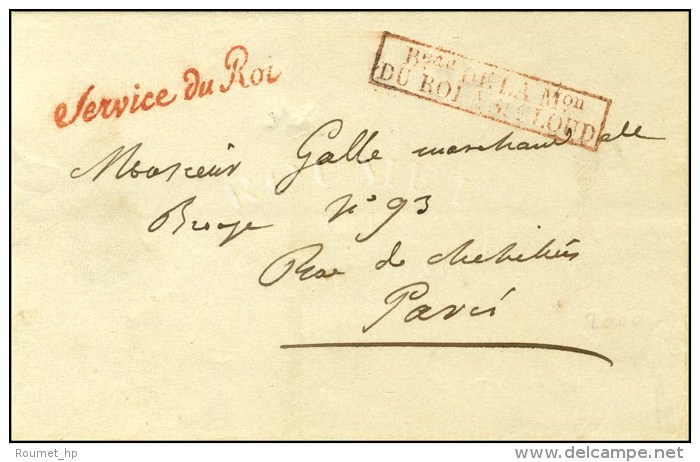 Service du Roi
Bau DE LA Mon
DU ROI A St CLOUD
Monsieur Galle marchand de
Bronze N° 93
Rue de
Paris
Roumet_hp
delcampe.net